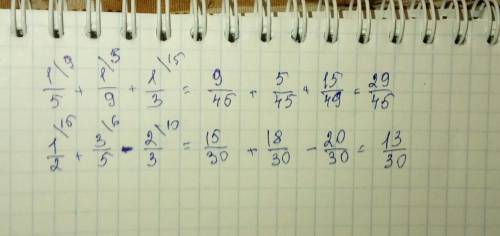 1/5 /9 + 1/9 /5 + 1/3 /15 = 9/45 + 5/45 + 15/49 = 29/45
1/2 /15 + 3/5 /6 - 2/3 /10 = 15/30 + 18/30 - 20/30 = 13/30